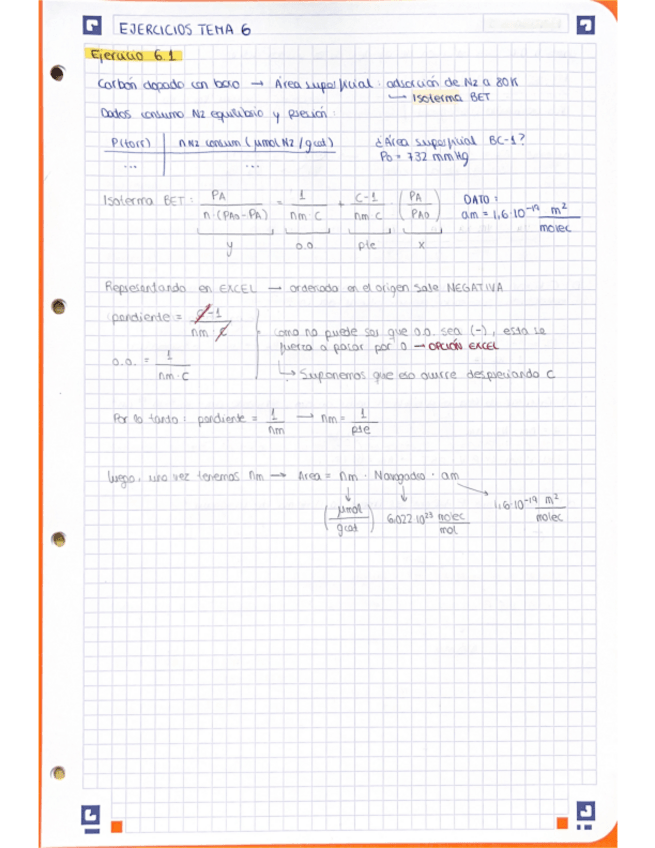 EJERCICIOS TEMA 6
Ejercicio 6.1
Carbón dopado con boro → Área superficial: adsorción de N2 a 80K
↳ Isoterma BET
Datos consumo N2 equilibrio y presión:
P(torr) | n N2 consum (μmol N2 / gcat)
... | ...
¿Área superficial BC-1?
P0 = 732 mmHg
Isoterma BET: PA / n·(PA0-PA) = 1 / nm C + C-1 / nm C · (PA / PA0)
y o.o pte x
DATO:
am = 1,6·10⁻¹⁹ m² / molec
Representando en EXCEL → ordenada en el origen sale NEGATIVA
pendiente = C-1 / nm·C
o.o. = 1 / nm·C
como no puede ser que o.o. sea (-), esta se
fuerza a pasar por 0 → OPCIÓN EXCEL
↳ Suponemos que eso ocurre despreciando C
Por lo tanto: pendiente = 1 / nm → nm = 1 / pte
luego, una vez tenemos nm → Area = nm · Navogadro · am
(μmol / gcat) 6.022·10²³ molec / mol 1,6·10⁻¹⁹ m² / molec